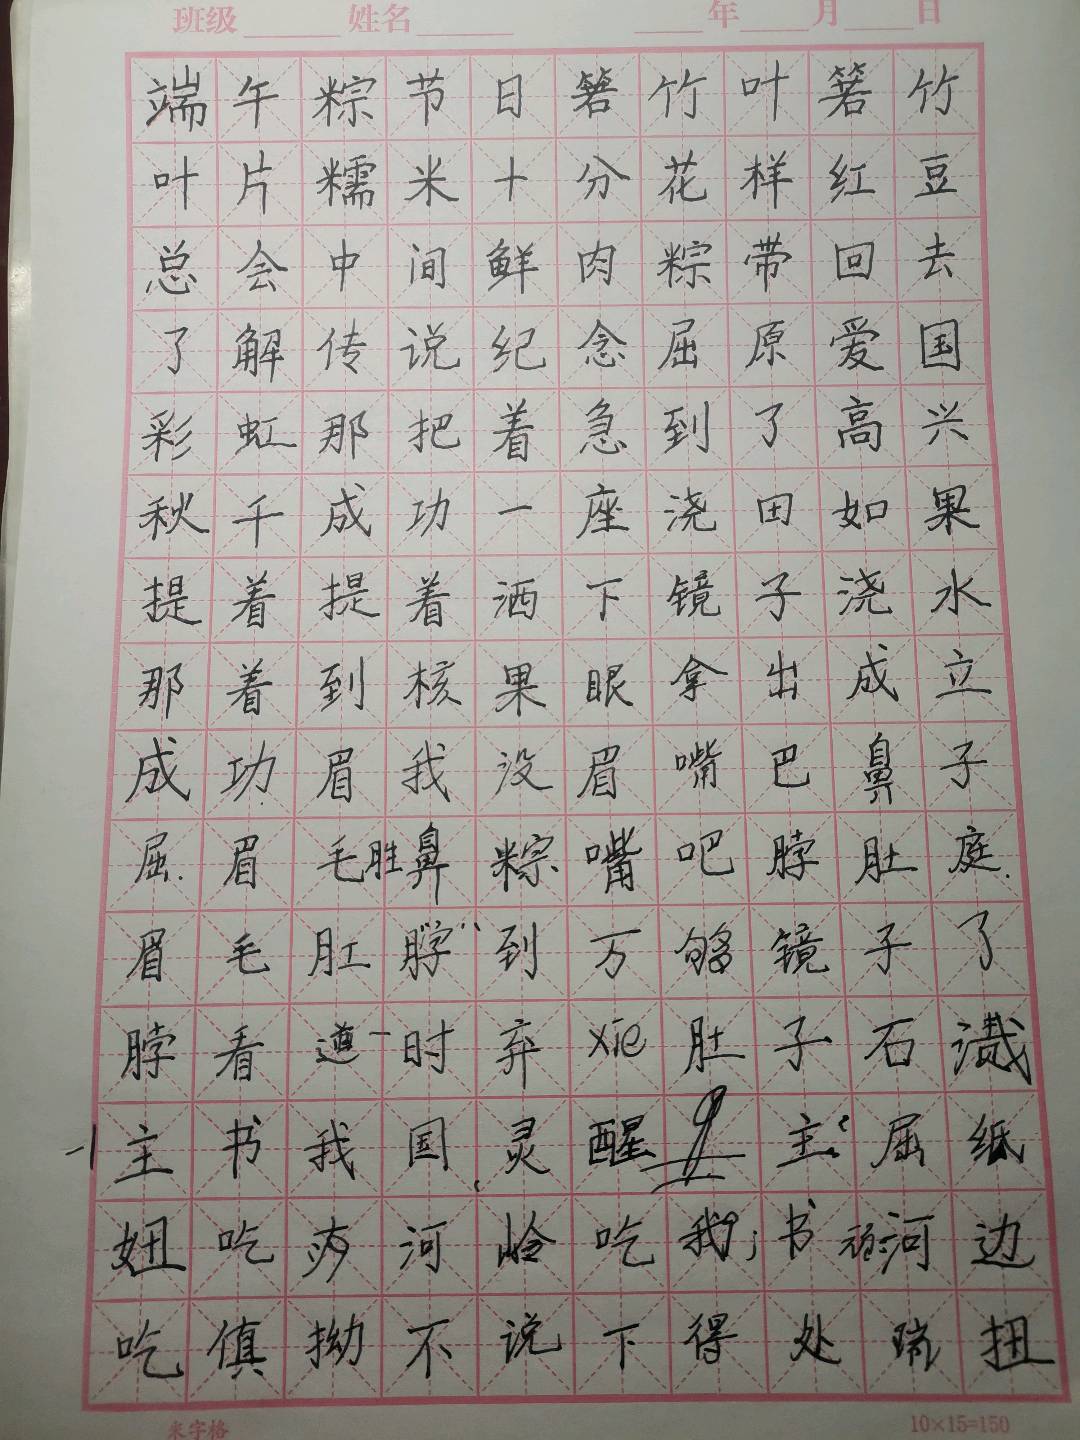 班级 姓名 年 月 日
端午粽节日箬竹叶箬竹
叶片糯米十分花样红豆
总会中间鲜肉粽带回去
了解传说纪念屈原爱国
彩虹那把着急到了高兴
秋千成功一座浇田如果
提着提着洒下镜子浇水
那着到核果眼拿出成立
成功眉我没眉嘴巴鼻子
屈眉毛胜鼻粽嘴吧脖肚庭
眉毛肛脖到万够镜子了
脖看遵一时弃xie肚子石
主书我国灵醒主屈纸
妞吃河吃我书河边
吃慎拗不说下得处瑞扭
米字格 10×15=150